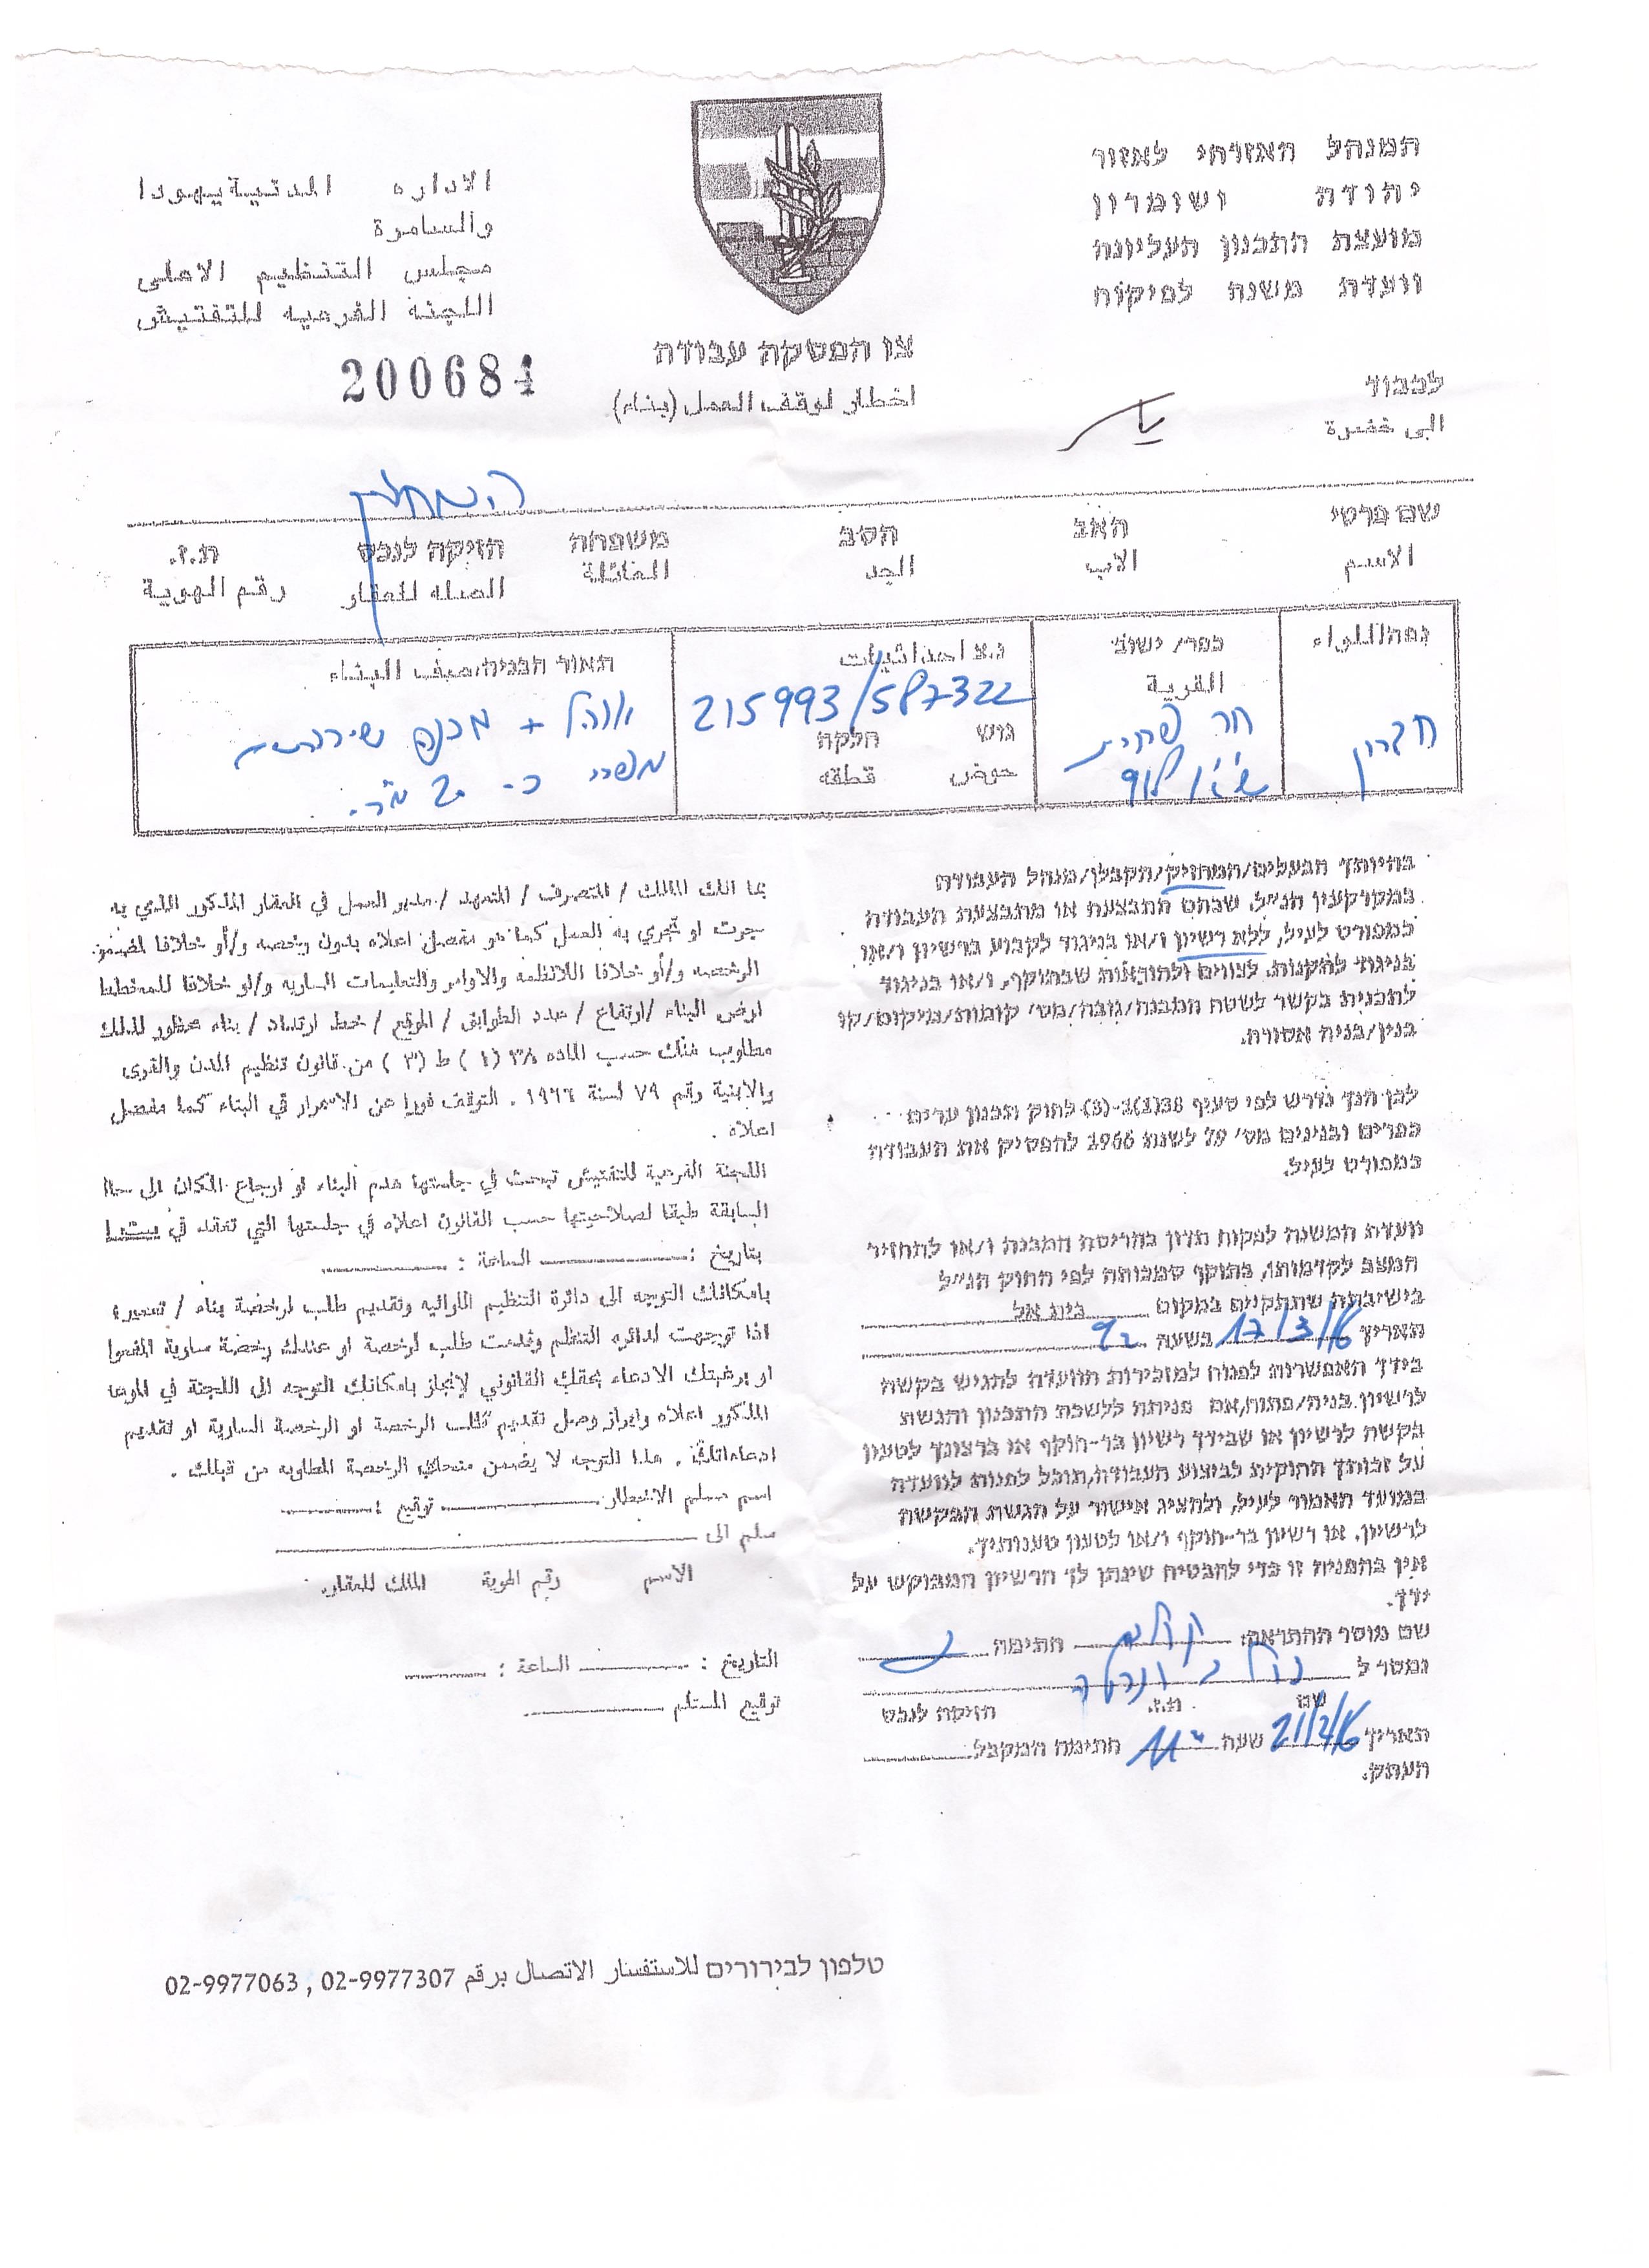 המנהל האזרחי לאזור
יהודה ושומרון
מועצת התכנון העליונה
וועדת משנה לפיקוח
الاداره المدنيية يهودا
والسامرة
مجلس التنظيم الاعلى
اللجنة الفرعيه للتفتيش
200684
צו הפסקה עבודה
اخطار لوقف العمل (بناء)
לכבוד
الى حضرة
המחזיק
שם פרטי האב הסב משפחה הזיקה לנכס ת.ז.
الاسم الاب الجد العائلة الصله للعقار رقم الهوية
נפה اللواء
חברון
כפר/ ישוב
القرية
נ.צ احداثيات
215993/587322
גוש חלקה
حوض قطقه
תאור הבניה/صيف البناء
אוהל + מבנה שירותים
כ- 20 מ"ר.
בהיותך הבעלים/המחזיק/הקבלן/מנהל העבודה
במקרקעין הנ״ל, שבהם התבצעה או מתבצעת העבודה
כמפורט לעיל, ללא רשיון ו/או בניגוד לקבוע ברשיון ו/או
בניגוד לתקנות, לצווים ולהוראות שבתוקף, ו/או בניגוד
לתכנית בקשר לשטח המבנה/גובה/מס׳ קומות/מיקום/קו
בנין/בניה אסורה.
לכן הנך נדרש לפי סעיף 38(1)ב-(3) לחוק תכנון ערים
כפרים ובנינים מס׳ 79 לשנת 1966 להפסיק את העבודה
כמפורט לעיל.
וועדת המשנה לפקוח תדון בהריסת המבנה ו/או להחזיר
המצב לקדמותו, בתוקף סמכותה לפי החוק הנ״ל
בישיבתה שתתקיים במקום בית אל
תאריך 17/3/16 בשעה 9
בידך האפשרות לפנות למזכירות הוועדה להגיש בקשה
לרשיון בניה/פתוח,אם פניתה ללשכת התכנון והגשת
בקשה לרשיון או שבידך רשיון בר-תוקף או ברצונך לטעון
על זכותך החוקית לביצוע העבודה,תוכל לפנות לוועדה
במועד האמור לעיל, ולהציג אישור על הגשת הבקשה
לרשיון, או רשיון בר-תוקף ו/או לטעון טענותיך.
אין בהפניה זו כדי להבטיח שינתן לך הרשיון המבוקש על
ידך.
שם מוסר ההתראה: חתימה
נמסר ל
שם ת.ז. הזיקה לנכס
תאריך 21/2/16 שעה 11 חתימה המקבל
העתק.
بما انك المالك / المتصرف / المتعهد / مدير العمل في العقار المذكور الذي به
جرت او تجري به العمل كما هو مفصل اعلاه بدون رخصه و/أو خلافا لمضمون
الرخصه و/أو خلافا اللانظمه والاوامر والتعليمات الساريه و/او خلافا للمخطط
ارض البناء /ارتفاع / عدد الطوابق / الموقع / خط ارتداد / بناء محظور لذلك
مطلوب منك حسب الماده ٣٨ (١ ) ط (٣ ) من قانون تنظيم المدن والقرى
والابنية رقم ٧٩ لسنة ١٩٦٦ . التوقف فورا عن الاستمرار في البناء كما مفصل
اعلاه .
اللجنة الفرعية للتفتيش تبحث في جلستها هدم البناء او ارجاع المكان الى حالـ
السابقة طبقا لصلاحيتها حسب القانون اعلاه في جلستها التي تعقد في
بتاريخ : الساعة :
بامكانك التوجه الى دائرة التنظيم اللوائيه وتقديم طلب لرخصة بناء /
اذا توجهت لدائره التنظم وقدمت طلب لرخصة او عندك رخصة سارية المفعول
او برغبتك الادعاء بحقك القانوني لإنجاز بامكانك التوجه الى اللجنة في الموعد
المذكور اعلاه وابراز وصل تقديم طلب الرخصة او الرخصة السارية او تقديم
ادعاءاتك . هذا التوجه لا يضمن منحك الرخصة المطلوبه من قبلك .
اسم مسلم الاخطار توقيع :
سلم الى
الاسم رقم الهوية المالك للعقار
التاريخ : الساعة :
توقيع المستلم
טלפון לבירורים للاستفسار الاتصال برقم 02-9977063 , 02-9977307